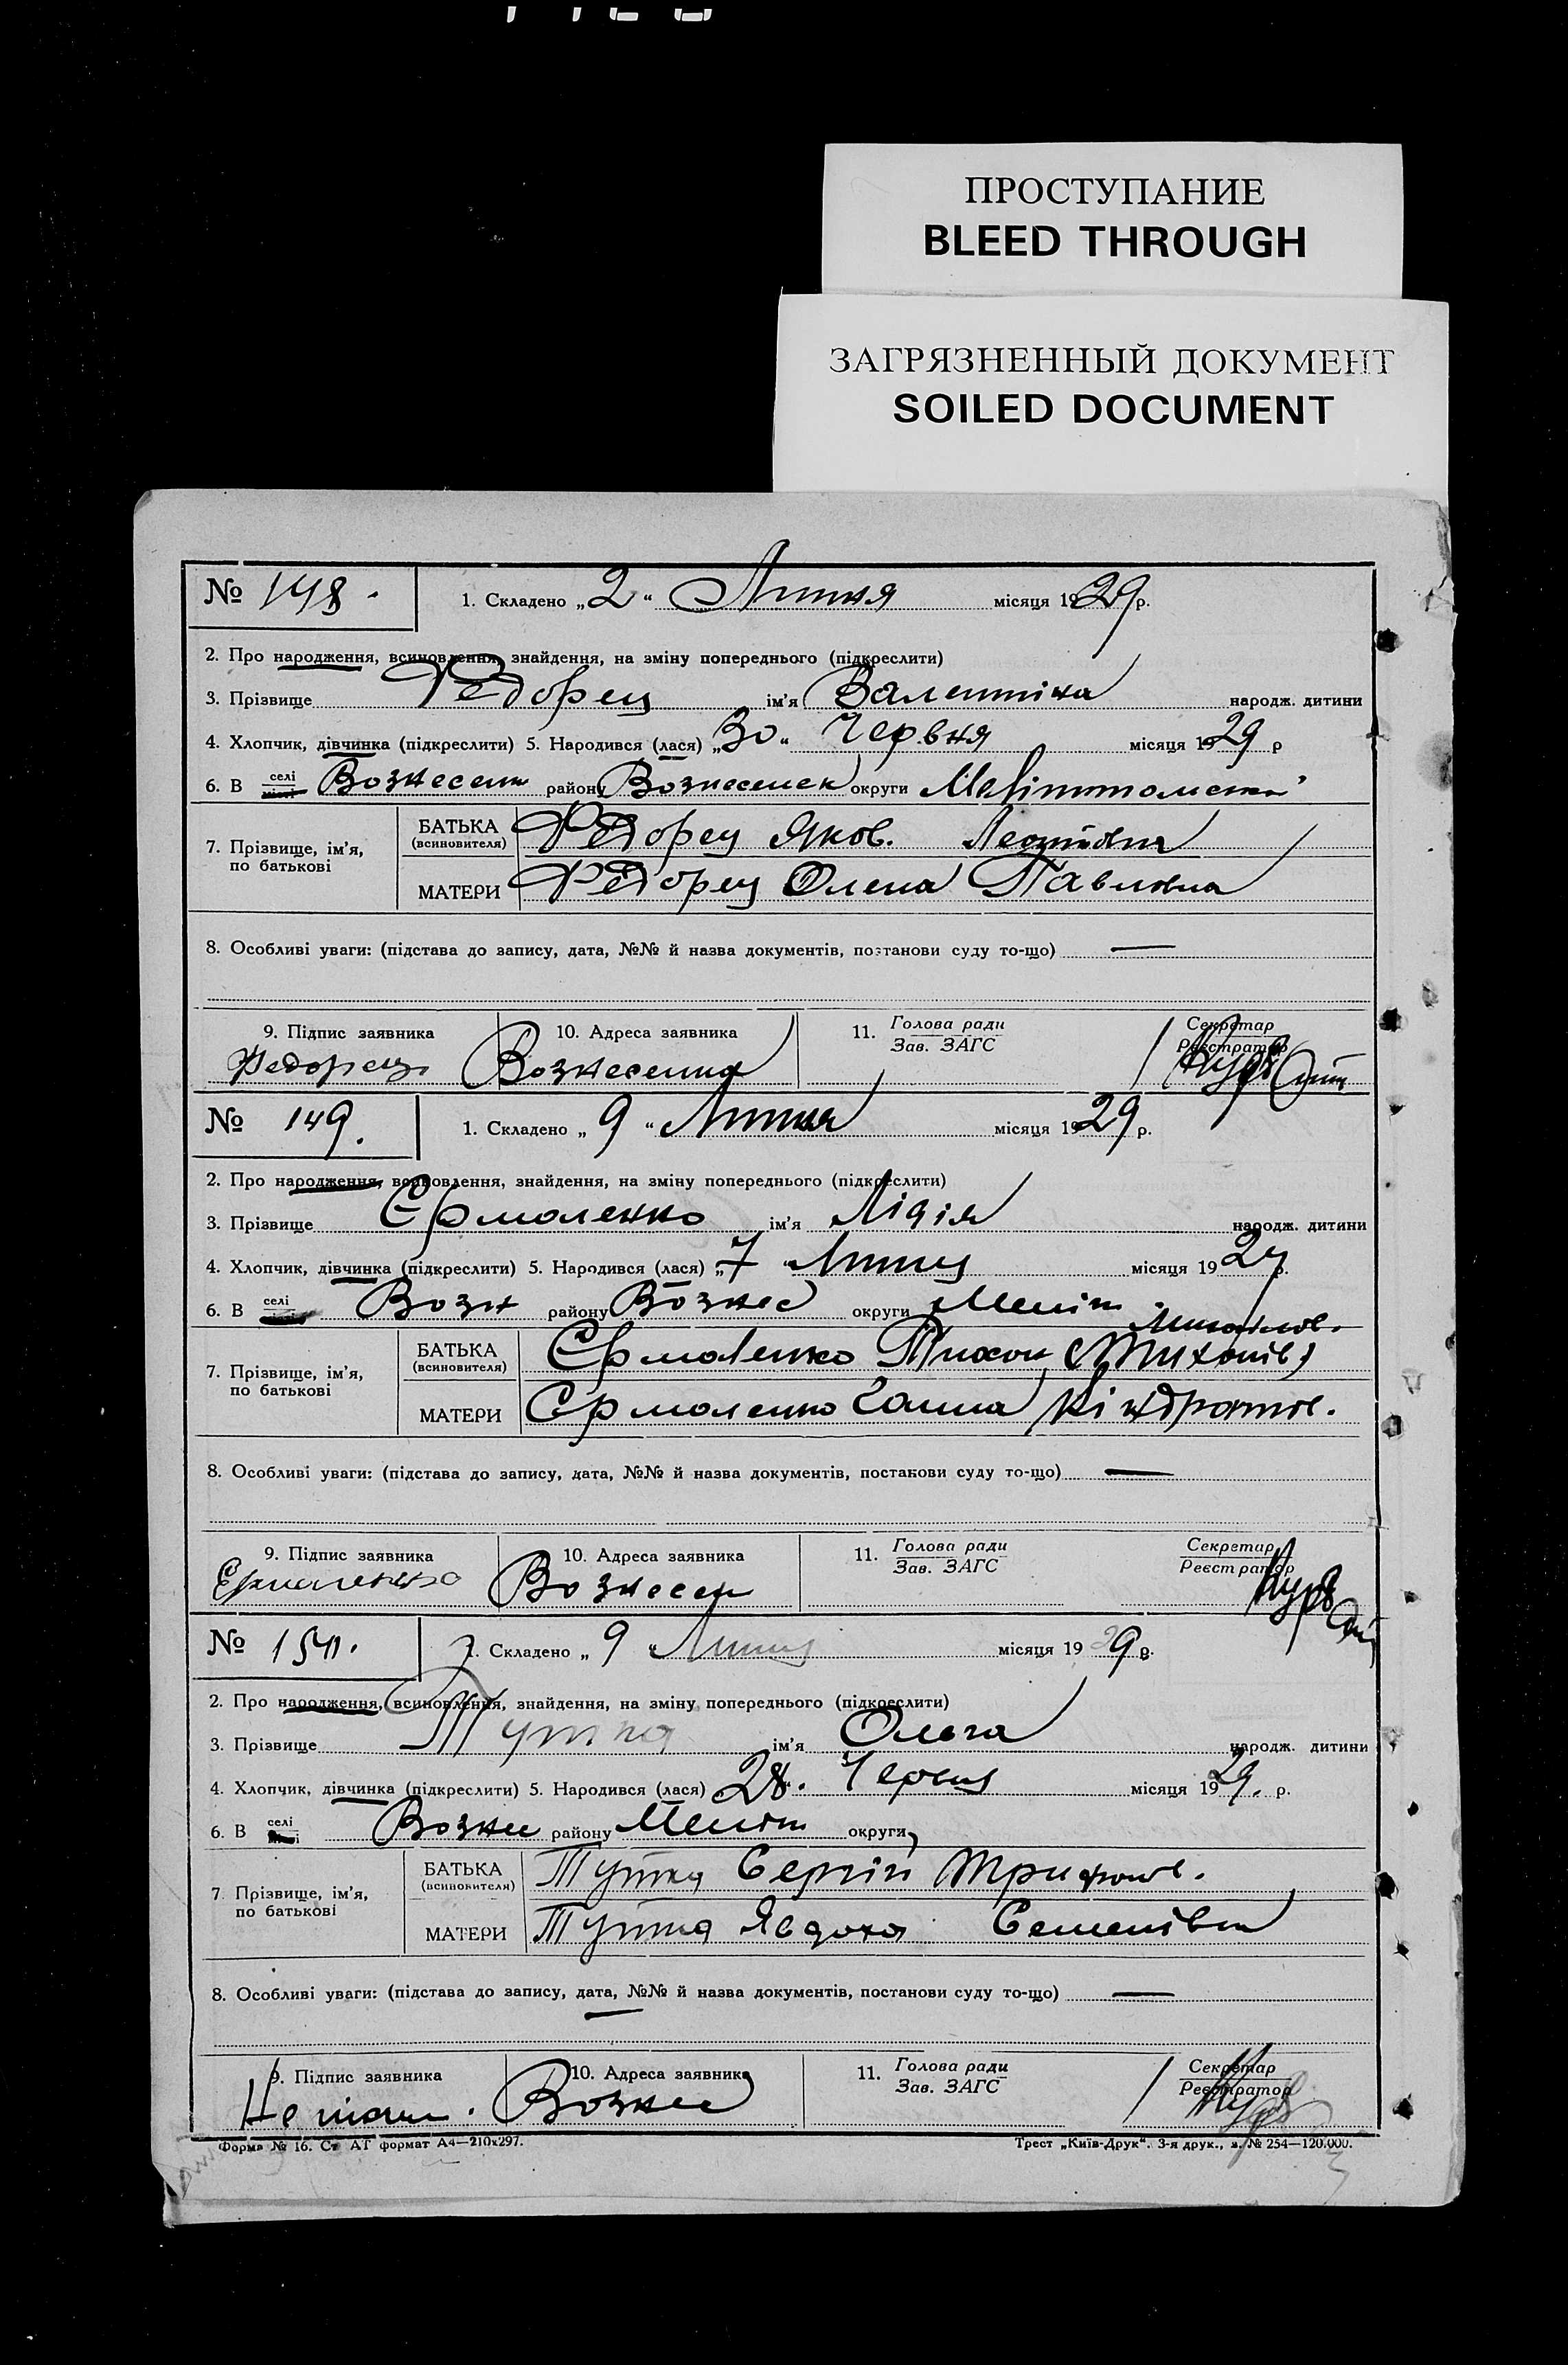 ПРОСТУПАНИЕ
BLEED THROUGH
ЗАГРЯЗНЕННЫЙ ДОКУМЕНТ
SOILED DOCUMENT
№ 148. 1. Складено „2“ Липня місяця 1929 р.
2. Про народження, всиновлення, знайдення, на зміну попереднього (підкреслити)
3. Прізвище Федорец ім'я Валентіна народж. дитини
4. Хлопчик, дівчинка (підкреслити) 5. Народився (лася) „30“ Червня місяця 1929 р
6. В селі Вознесенк району Вознесенск округи
7. Прізвище, ім'я, по батькові БАТЬКА (всиновителя) Федорец Яков.
МАТЕРИ Федорец Олена Павловна
8. Особливі уваги: (підстава до запису, дата, №№ й назва документів, постанови суду то-що) —
9. Підпис заявника 10. Адреса заявника 11. Голова ради Зав. ЗАГС Секретар Реєстратор
Федорец Вознесенка
№ 149. 1. Складено „9“ Липня місяця 1929 р.
2. Про народження, всиновлення, знайдення, на зміну попереднього (підкреслити)
3. Прізвище Єрмоленко ім'я Лідія народж. дитини
4. Хлопчик, дівчинка (підкреслити) 5. Народився (лася) „7“ Липня місяця 1929 р.
6. В селі Возн району Вознес округи Меліт.
7. Прізвище, ім'я, по батькові БАТЬКА (всиновителя) Єрмоленко Тихон (Тихонів)
МАТЕРИ Єрмоленко Ганна Кіндратов.
8. Особливі уваги: (підстава до запису, дата, №№ й назва документів, постанови суду то-що) —
9. Підпис заявника 10. Адреса заявника 11. Голова ради Зав. ЗАГС Секретар Реєстратор
Ермаленко Вознесен
№ 150. 1. Складено „9“ Липня місяця 1929 р.
2. Про народження, всиновлення, знайдення, на зміну попереднього (підкреслити)
3. Прізвище ім'я Ольга народж. дитини
4. Хлопчик, дівчинка (підкреслити) 5. Народився (лася) „28“. Червня місяця 1929. р.
6. В селі Вознес району Меліт округи
7. Прізвище, ім'я, по батькові БАТЬКА (всиновителя) Сергій Трифонов.
МАТЕРИ Явдоха Семенівна
8. Особливі уваги: (підстава до запису, дата, №№ й назва документів, постанови суду то-що) —
9. Підпис заявника 10. Адреса заявника 11. Голова ради Зав. ЗАГС Секретар Реєстратор
Вознес
Форма № 16. Ст АТ формат А4—210x297. Трест „Київ-Друк“. 3-я друк., з. № 254—120.000.